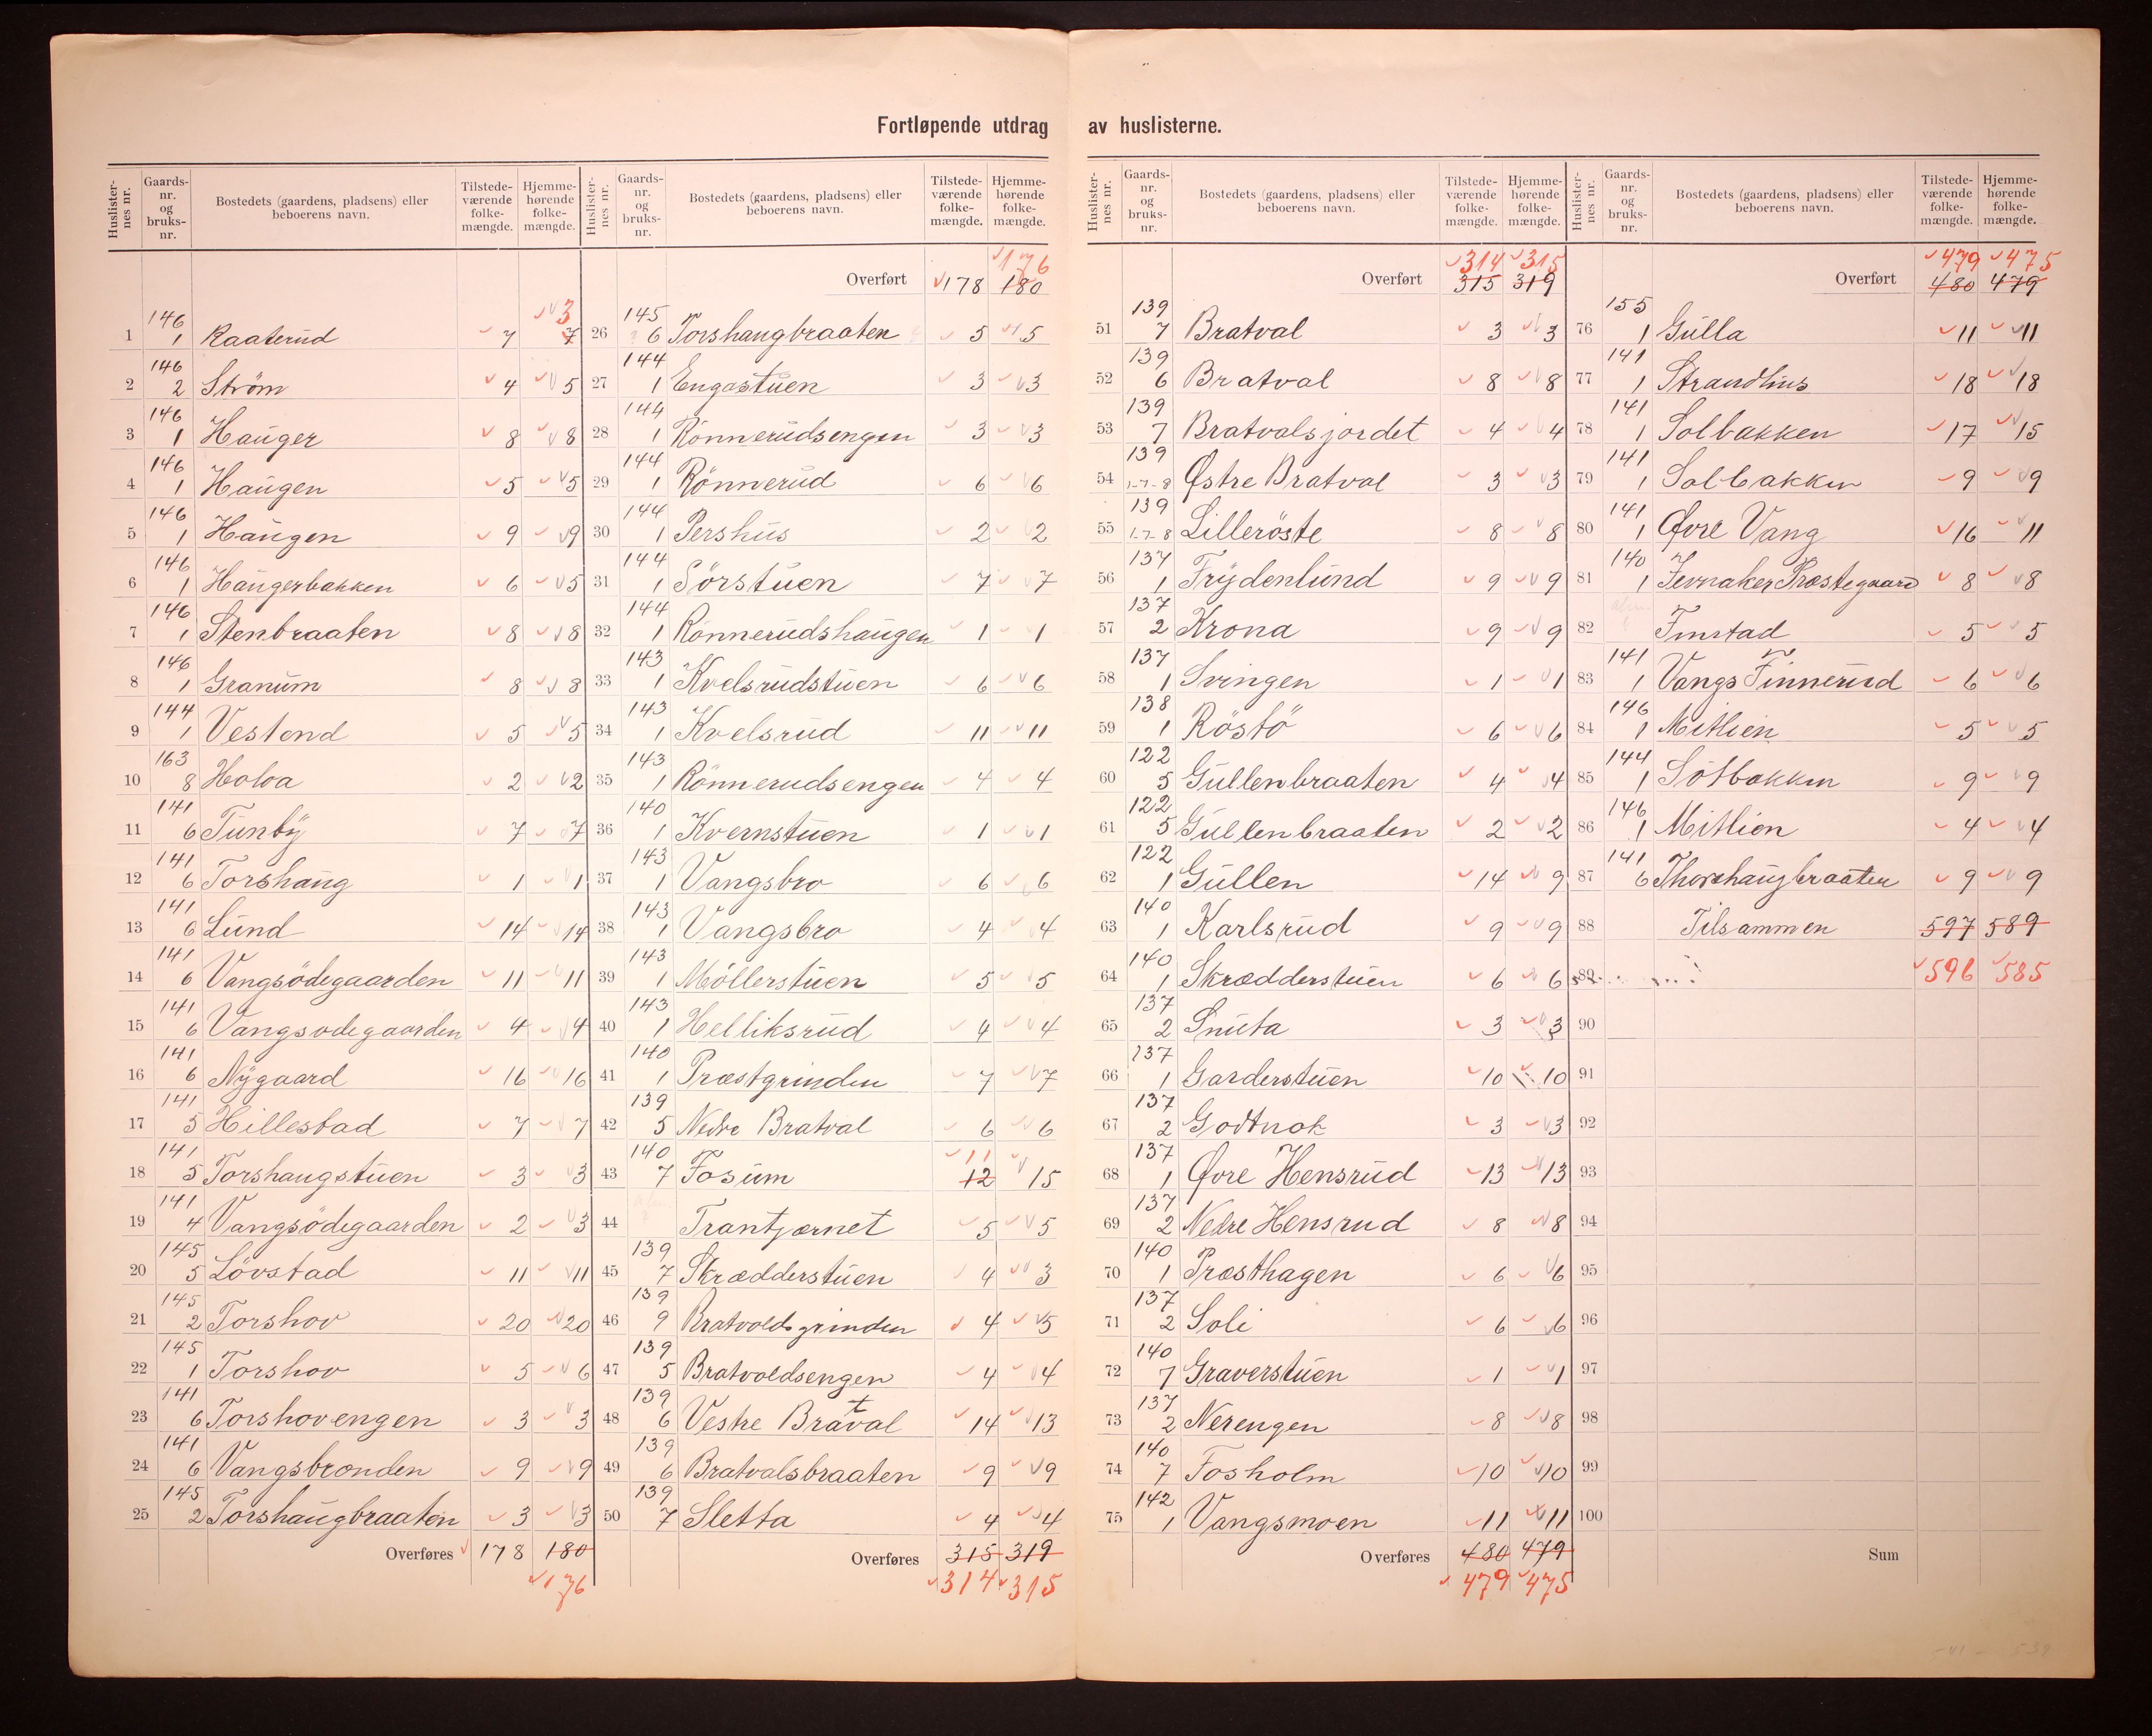 Fortløpende utdrag av huslisterne.
Huslister-nes nr. Gaards-nr. og bruks-nr. Bostedets (gaardens, pladsens) eller beboerens navn. Tilstede-værende folke-mængde. Hjemme-hørende folke-mængde.
1 146 1 Raaterud 7 7 3
2 146 2 Strøm 4 5
3 146 1 Hauger 8 8
4 146 1 Haugen 5 5
5 146 1 Haugen 9 9
6 146 1 Haugerbakken 6 5
7 146 1 Stenbraaten 8 8
8 146 1 Granum 8 8
9 144 1 Vestend 5 5
10 163 8 Holoa 2 2
11 141 6 Tunby 7 7
12 141 6 Torshaug 1 1
13 141 6 Lund 14 14
14 141 6 Vangsödegaarden 11 11
15 141 6 Vangsodegaarden 4 4
16 141 6 Nygaard 16 16
17 141 5 Hillestad 7 7
18 141 5 Torshaugstuen 3 3
19 141 4 Vangsödegaarden 2 3
20 145 5 Lövstad 11 11
21 145 2 Torshov 20 20
22 145 1 Torshov 5 6
23 141 6 Torshovengen 3 3
24 141 6 Vangsbronden 9 9
25 145 2 Torshaugbraaten 3 3
Overføres 178 180
176
Huslister-nes nr. Gaards-nr. og bruks-nr. Bostedets (gaardens, pladsens) eller beboerens navn. Tilstede-værende folke-mængde. Hjemme-hørende folke-mængde.
176
Overført 178 180
26 145 6 Torshaugbraaten 5 5
27 144 1 Engastuen 3 3
28 144 1 Rönnerudsengen 3 3
29 144 1 Rönnerud 6 6
30 144 1 Pershus 2 2
31 144 1 Sörstuen 7 7
32 144 1 Rönnerudshaugen 1 1
33 143 1 Kvelsrudstuen 6 6
34 143 1 Kvelsrud 11 11
35 143 1 Rönnerudsengen 4 4
36 140 1 Kvernstuen 1 1
37 143 1 Vangsbro 6 6
38 143 1 Vangsbro 4 4
39 143 1 Möllerstuen 5 5
40 143 1 Helliksrud 4 4
41 140 1 Præstgrinden 7 7
42 139 5 Nedre Bratval 6 6
43 140 7 Fosum 12 11 15
44 Trantjærnet 5 5
45 139 7 Skrædderstuen 4 3
46 139 9 Bratvoldsgrinden 4 5
47 139 5 Bratvoldsengen 4 4
48 139 6 Vestre Bratval 14 13
49 139 6 Bratvalsbraaten 9 9
50 139 7 Sletta 4 4
Overføres 315 319
314 315
Huslister-nes nr. Gaards-nr. og bruks-nr. Bostedets (gaardens, pladsens) eller beboerens navn. Tilstede-værende folke-mængde. Hjemme-hørende folke-mængde.
314 315
Overført 315 319
51 139 7 Bratval 3 3
52 139 6 Bratval 8 8
53 139 7 Bratvalsjordet 4 4
54 139 1-7-8 Østre Bratval 3 3
55 139 1-7-8 Lilleröste 8 8
56 137 1 Frydenlund 9 9
57 137 2 Krona 9 9
58 137 1 Svingen 1 1
59 138 1 Röstö 6 6
60 122 5 Gullenbraaten 4 4
61 122 5 Gullenbraaten 2 2
62 122 1 Gullen 14 9
63 140 1 Karlsrud 9 9
64 140 1 Skrædderstuen 6 6
65 137 2 Snuta 3 3
66 137 1 Garderstuen 10 10
67 137 2 Godtnok 3 3
68 137 1 Øvre Hensrud 13 13
69 137 2 Nedre Hensrud 8 8
70 140 1 Præsthagen 6 6
71 137 2 Soli 6 6
72 140 7 Graverstuen 1 1
73 137 2 Nerengen 8 8
74 140 7 Fosholm 10 10
75 142 1 Vangsmoen 11 11
Overføres 480 479
479 475
Huslister-nes nr. Gaards-nr. og bruks-nr. Bostedets (gaardens, pladsens) eller beboerens navn. Tilstede-værende folke-mængde. Hjemme-hørende folke-mængde.
479 475
Overført 480 479
76 155 1 Gulla 11 11
77 141 1 Strandhus 18 18
78 141 1 Solbakken 17 15
79 141 1 Solbakken 9 9
80 141 1 Øvre Vang 16 11
81 140 1 Jevnaker Præstegaard 8 8
82 Finstad 5 5
83 141 1 Vangs Finnerud 6 6
84 146 1 Mitlien 5 5
85 144 1 Solbakken 9 9
86 146 1 Mitlien 4 4
87 141 6 Thorshaugbraaten 9 9
88 Tilsammen 597 589
89 596 585
90
91
92
93
94
95
96
97
98
99
100
Sum